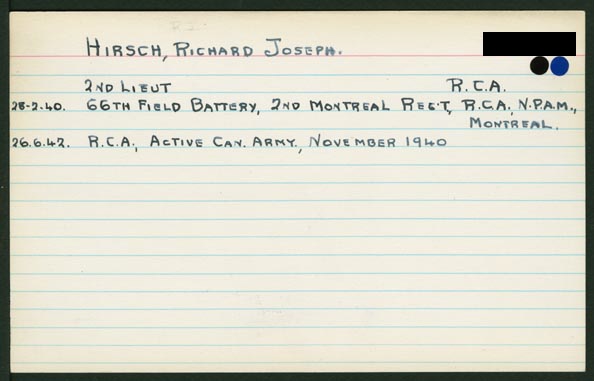 HIRSCH, RICHARD JOSEPH.
2ND LIEUT R.C.A.
28-2-40. 66TH FIELD BATTERY, 2ND MONTREAL REG'T, R.C.A., N.P.A.M.,
MONTREAL.
26.6.42. R.C.A., ACTIVE CAN. ARMY., NOVEMBER 1940